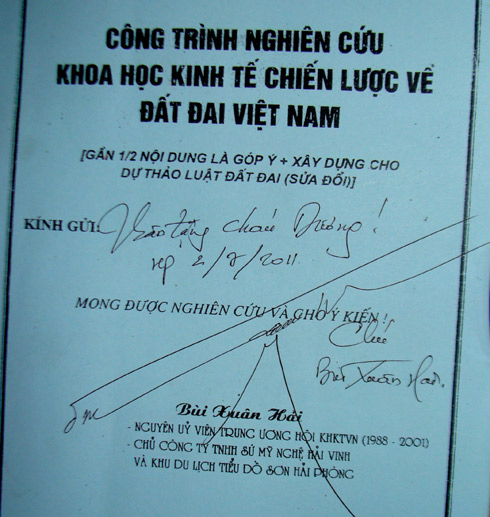 CÔNG TRÌNH NGHIÊN CỨU
KHOA HỌC KINH TẾ CHIẾN LƯỢC VỀ
ĐẤT ĐAI VIỆT NAM
[GẦN 1/2 NỘI DUNG LÀ GÓP Ý + XÂY DỰNG CHO
DỰ THẢO LUẬT ĐẤT ĐAI (SỬA ĐỔI)]
KÍNH GỬI: tặng cháu Dương!
2/7/2011
MONG ĐƯỢC NGHIÊN CỨU VÀ CHO Ý KIẾN!
Chú
Bùi Xuân Hải
Bùi Xuân Hải
- NGUYÊN UỶ VIÊN TRUNG ƯƠNG HỘI KHKTVN (1988 - 2001)
- CHỦ CÔNG TY TNHH SỨ MỸ NGHỆ HẢI VINH
VÀ KHU DU LỊCH TIỂU ĐỒ SƠN HẢI PHÒNG